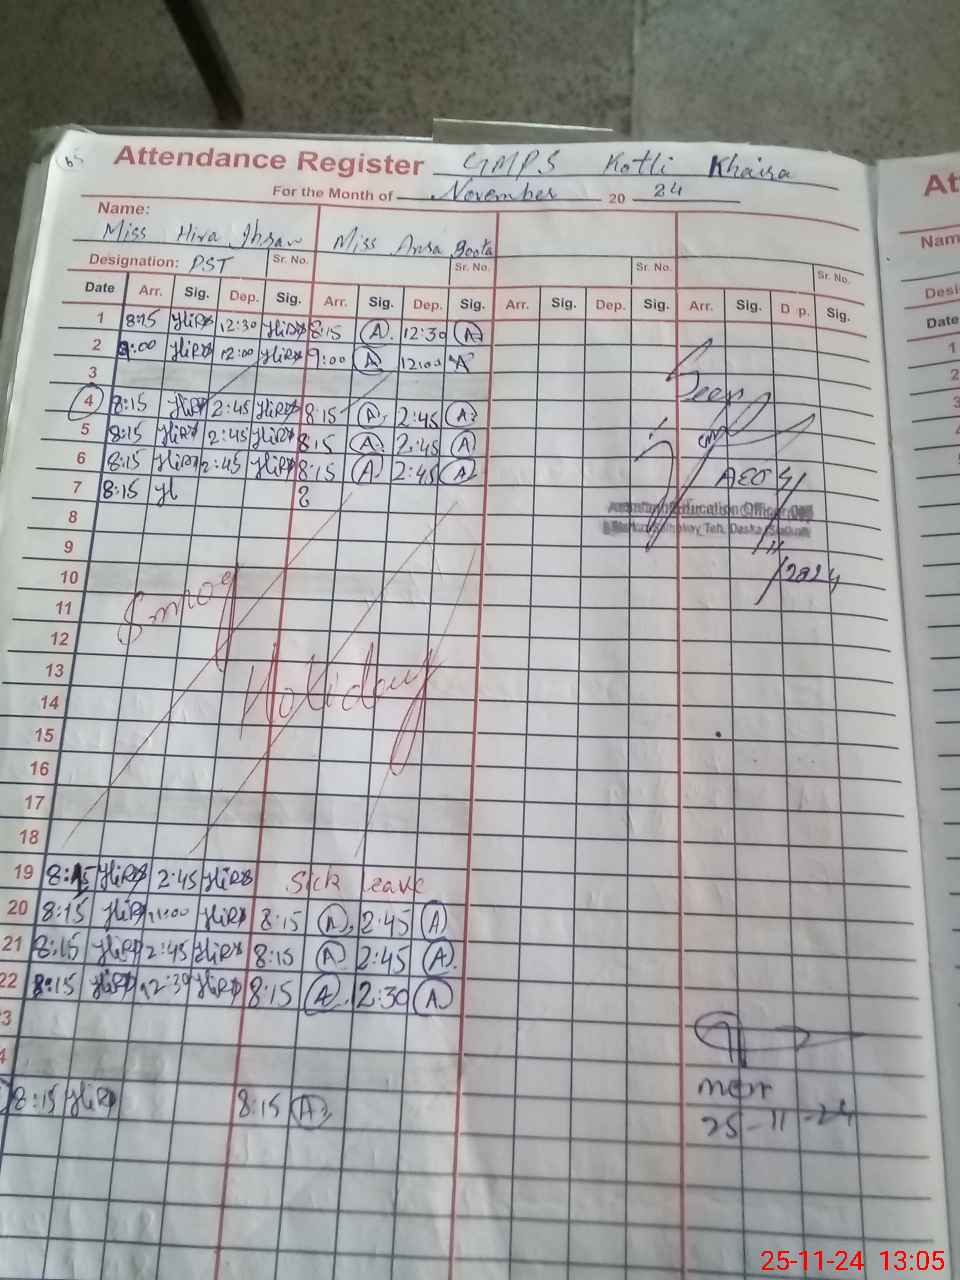 Attendance Register GMPS Kotli Khaira
For the Month of November 20 24
Name:
Miss Hira Ihsan Miss Ansa Boota
Designation: PST Sr. No. Sr. No. Sr. No. Sr. No.
Date Arr. Sig. Dep. Sig. Arr. Sig. Dep. Sig. Arr. Sig. Dep. Sig. Arr. Sig. D p. Sig.
1 8:15 HiRa 12:30 HiRa 8:15 A 12:30 A
2 9:00 HiRa 12:00 HiRa 9:00 A 12:00 A
3
4 8:15 HiRa 2:45 HiRa 8:15 A 2:45 A
Seen
5 8:15 HiRa 2:45 HiRa 8:15 A 2:45 A
6 8:15 HiRa 2:45 HiRa 8:15 A 2:45 A
AEO
7 8:15 Hi 8
8
Education Officer
Teh. Daska
9
11
10
2024
11
Smog
12
13
Holiday
14
15
16
17
18
19 8:15 HiRa 2:45 HiRa Sick Leave
20 8:15 HiRa HiRa 8:15 A 2:45 A
21 8:15 HiRa 2:45 HiRa 8:15 A 2:45 A
22 8:15 HiRa HiRa 8:15 A 2:30 A
3
4
8:15 HiRa 8:15 A
mea
25-11-24
Att
Nam
Desi
Date
1
2
3
25-11-24 13:05